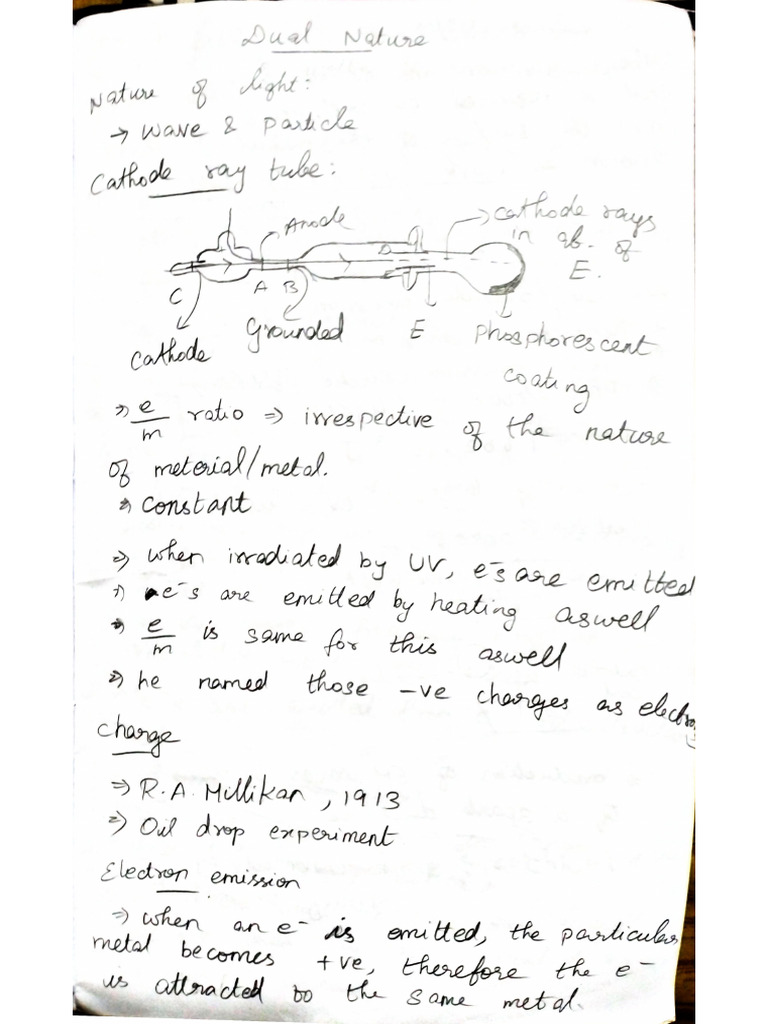 Dual Nature
Nature of light:
→ wave & particle
Cathode ray tube:
Anode
→ cathode rays
in ab. of
E.
C
A B
D
cathode
Grounded
E
phosphorescent
coating
⇒ e/m ratio ⇒ irrespective of the nature
of meterial/metal.
⇒ constant
⇒ when irradiated by UV, e⁻s are emitted
⇒ e⁻s are emitted by heating aswell
⇒ e/m is same for this aswell
⇒ he named those -ve charges as electro
charge
⇒ R.A. Millikan, 1913
⇒ Oil drop experiment
Electron emission
⇒ when an e⁻ is emitted, the particular
metal becomes +ve, therefore the e⁻
is attracted to the same metal.